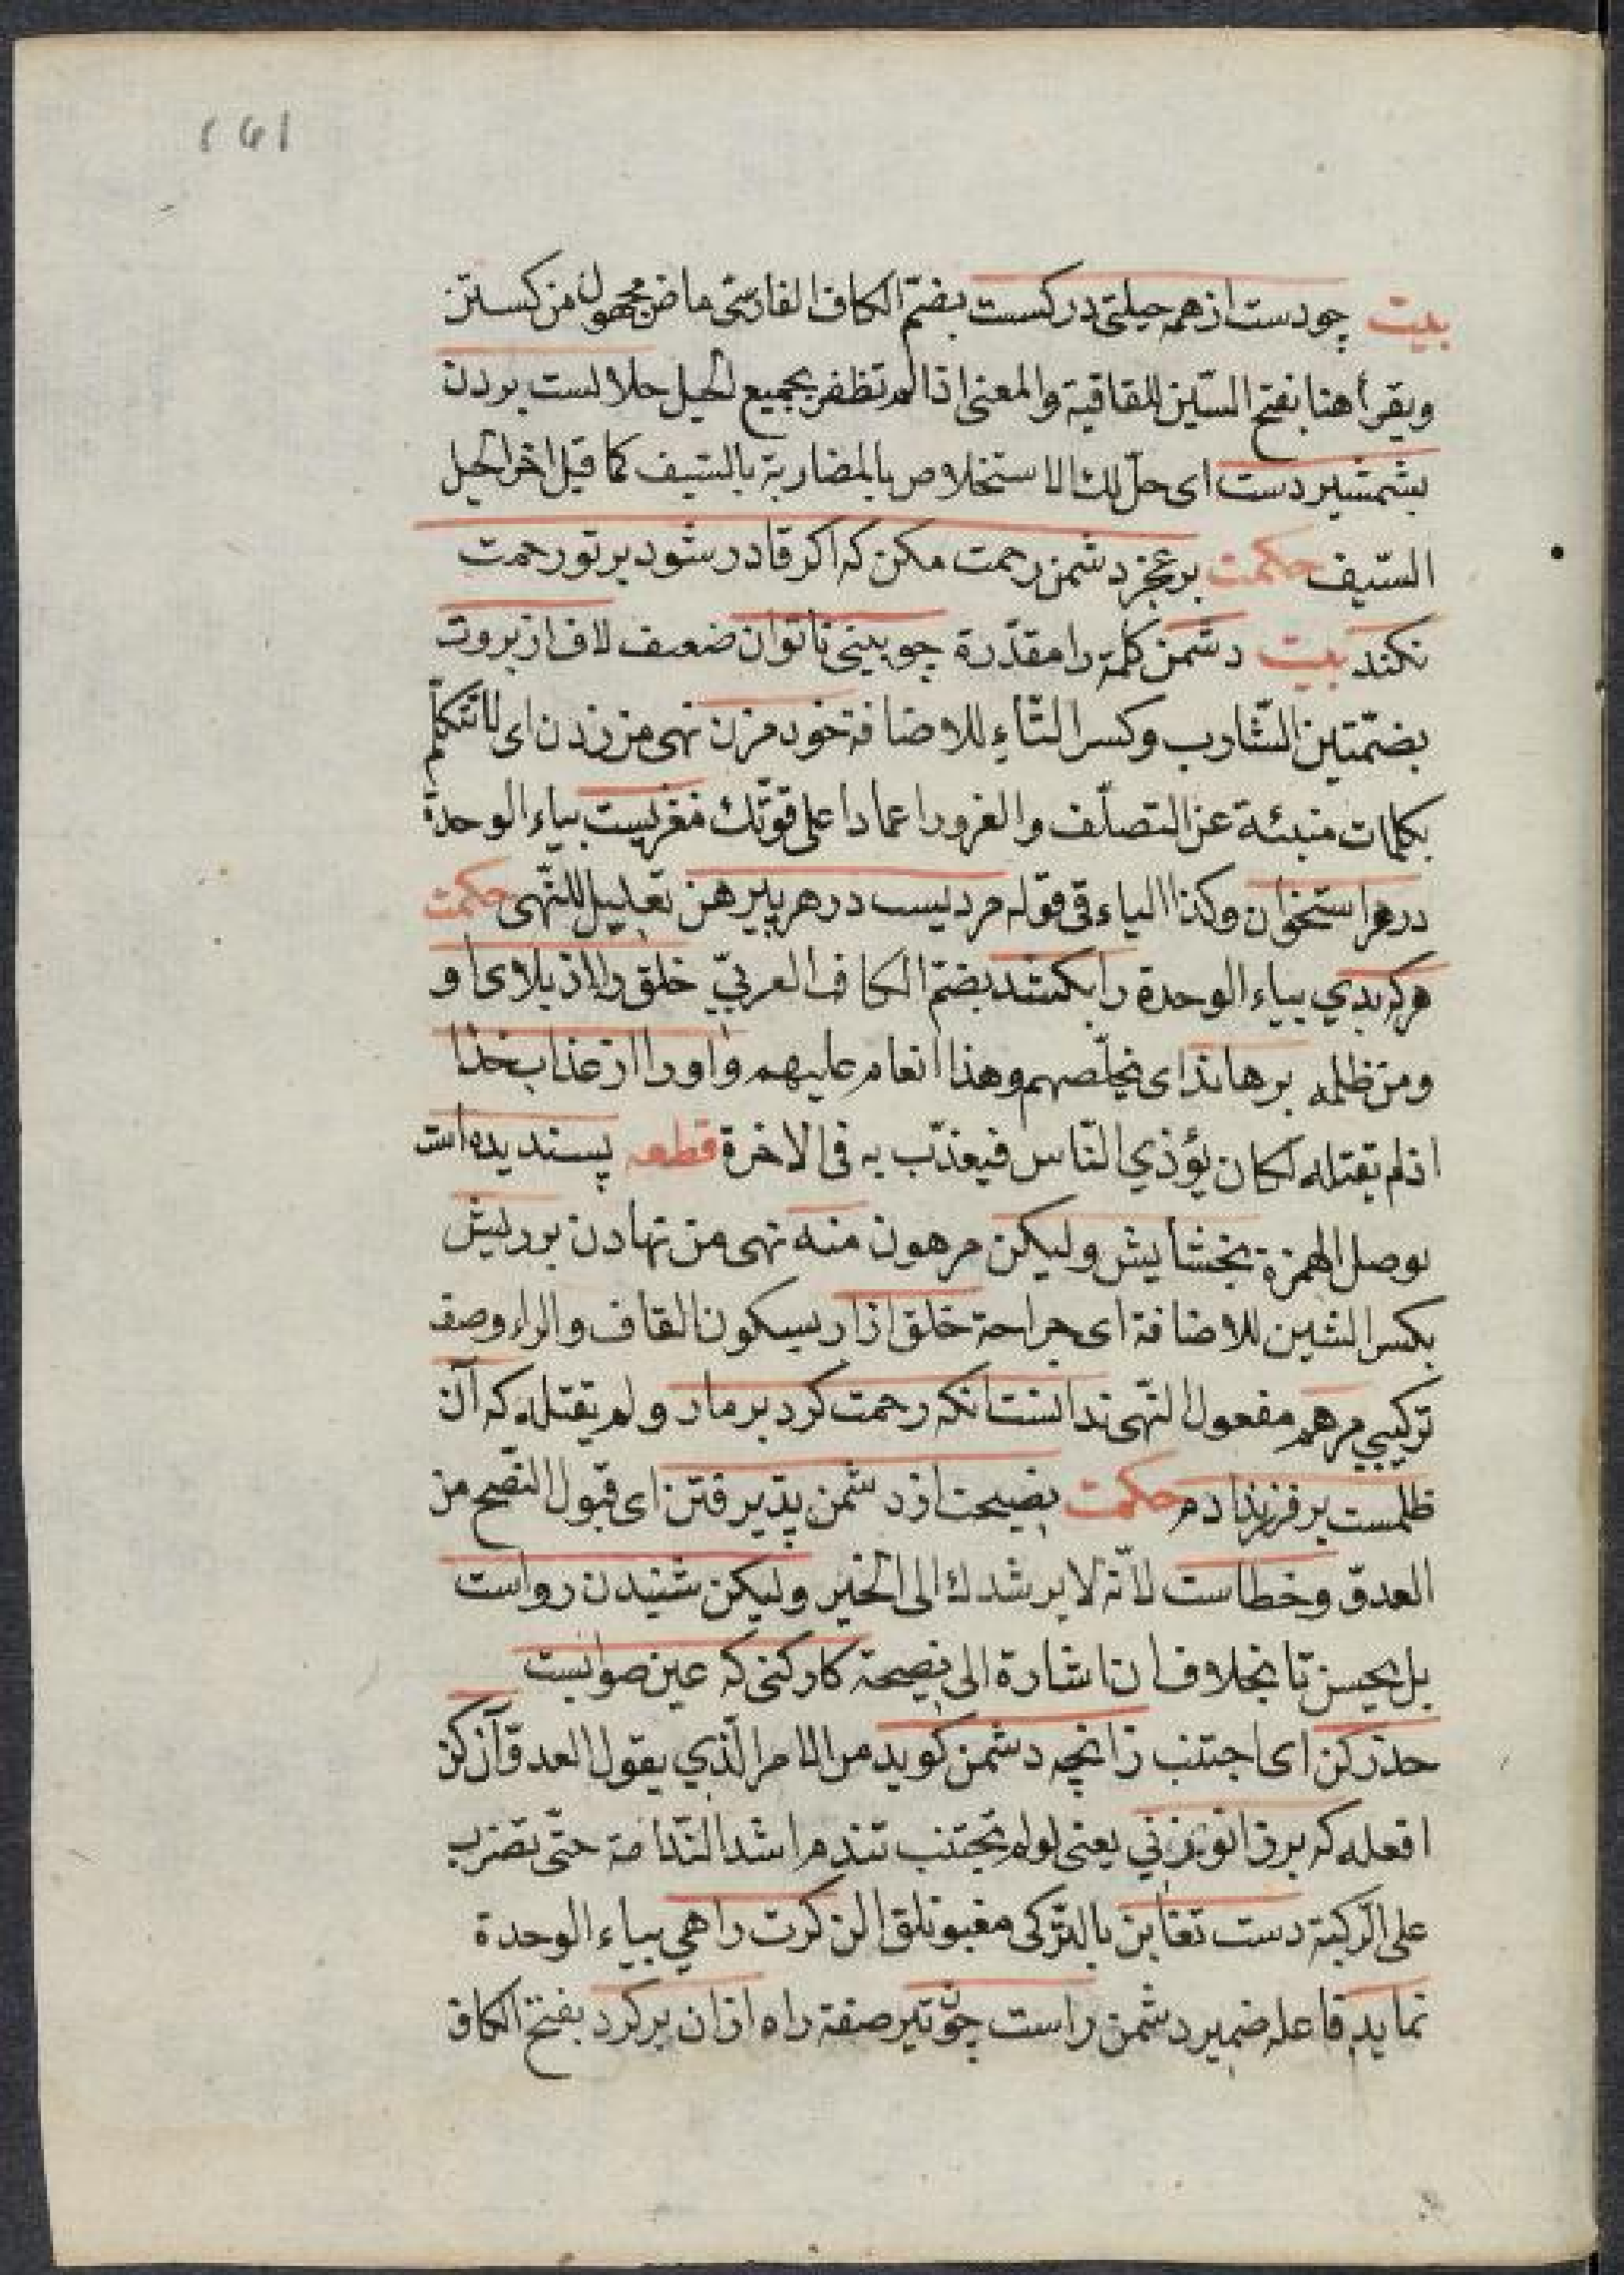 ١٦١
بيت چو دست از همه حيلتى در كست بضمّ الكاف الفارسّى ماض مجهول من كستن
ويقرأ هنا بفتح السّين للقافية والمعنى اذا لم تظفر بجميع الحيل حلالست بردن
بشمشير دست اى حلّ لك الاستخلاص بالمضاربة بالسّيف كما قيل اخر الحيل
السّيف حكمت بر عجز دشمن رحمت مكن كه اكر قادر شود بر تو رحمت
نكند بيت دشمن كلمة را مقدّرة چو بينى ناتوان ضعيف لاف از بروت
بضمّتين الشّارب وكسر التّاء للاضافة خود مزن نهى من زدن اى لا تتكلّم
بكلمات منبئة عن التصلّف والغرور اعمادا على قوّتك مغزيست بياء الوحدة
در هر استخوان وكذا الياء فى قوله مرديست در هر پيرهن تعليل للنّهى حكمت
هركه بدي بياء الوحدة را بكشد بضمّ الكاف العربىّ خلق را از بلاى او
ومن ظلمه برهاند اى يخلّصهم وهذا انعام عليهم واورا از عذاب خدا
اذ لم يقتله لكان يؤذي النّاس فيعذّب به فى الاخرة قطعه پسنديده است
بوصل الهمزة بخشايش وليكن مرهون منه نهى من نهادن بر ريش
بكسر الشين للاضافة اى جراحة خلق ازار بسكون القاف والراء وصف
تركيبي مرهم مفعول النّهى ندانست انكه رحمت كرد بر مار ولم يقتله كه آن
ظلمست بر فرزند ادم حكمت نصيحت از دشمن پذيرفتن اى قبول النّصح من
العدوّ وخطاست لانّه لا يرشدك الى الخير وليكن شنيدن رواست
بل يحسن تا بخلاف ان اشارة الى نصيحة كار كنى كه عين صوابست
حذر كن اى اجتنب زانچه دشمن كويد من الامر الّذي يقول العدوّ آن كن
افعله كه بر زانو زنى يعنى لو لم تجتنب تندم اشد النّدامة حتّى تضرب
على الركبة دست تغابن بالتّركى مغبونلق الن كرت راهي بياء الوحدة
نمايد فاعله ضمير دشمن راست چون تير صفة راه ازان بركرد بفتح الكاف